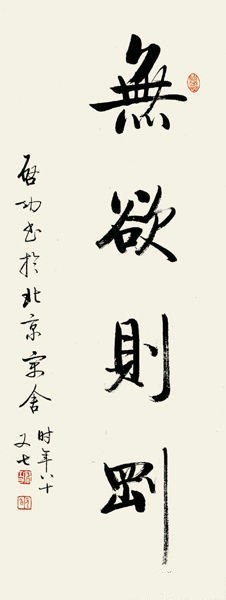 無欲則剛
啟功書於北京寓舍
时年八十又七